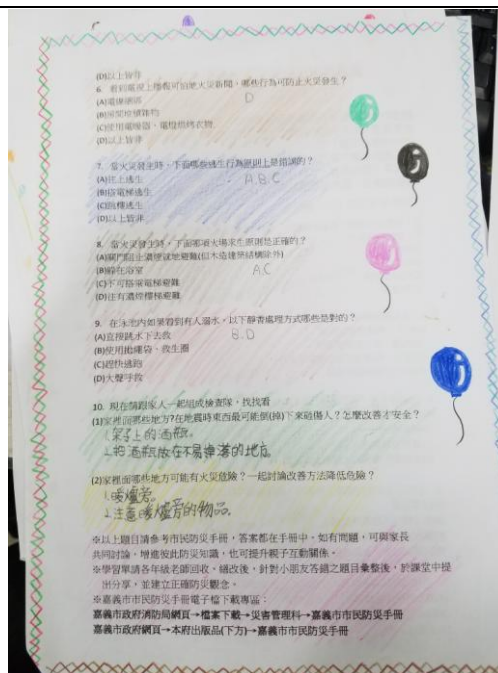 (D)以上皆非
6. 看到電視上播報可怕地火災新聞，哪些行為可防止火災發生？
(A)電線綑綁 D
(B)房間堆積雜物
(C)使用電暖器、電燈烘烤衣物
(D)以上皆非
7. 當火災發生時，下面哪些逃生行為原則上是錯誤的？
(A)往上逃生 A.B.C
(B)搭電梯逃生
(C)跳樓逃生
(D)以上皆非
8. 當火災發生時，下面哪項火場求生原則是正確的？
(A)關門阻止濃煙就地避難(但木造建築結構除外)
(B)躲在浴室 A.C
(C)不可搭乘電梯避難
(D)往有濃煙樓梯避難
9. 在泳池內如果看到有人溺水，以下靜香處理方式哪些是對的？
(A)直接跳水下去救 B.D
(B)使用拋繩袋、救生圈
(C)趕快逃跑
(D)大聲呼救
10. 現在請跟家人一起組成檢查隊，找找看
(1)家裡面哪些地方?在地震時東西最可能倒(掉)下來砸傷人？怎麼改善才安全？
1.架子上的酒瓶。
2.把酒瓶放在不易掉落的地方
(2)家裡面哪些地方可能有火災危險？一起討論改善方法降低危險？
1.暖爐旁。
2.注意暖爐旁的物品。
※以上題目請參考市民防災手冊，答案都在手冊中，如有問題，可與家長
共同討論，增進彼此防災知識，也可提升親子互動關係。
※學習單請各年級老師回收、繕改後，針對小朋友答錯之題目彙整後，於課堂中提
出分享，並建立正確防災觀念。
※嘉義市市民防災手冊電子檔下載專區：
嘉義市政府消防局網頁→檔案下載→災害管理科→嘉義市市民防災手冊
嘉義市政府網頁→本府出版品(下方)→嘉義市市民防災手冊